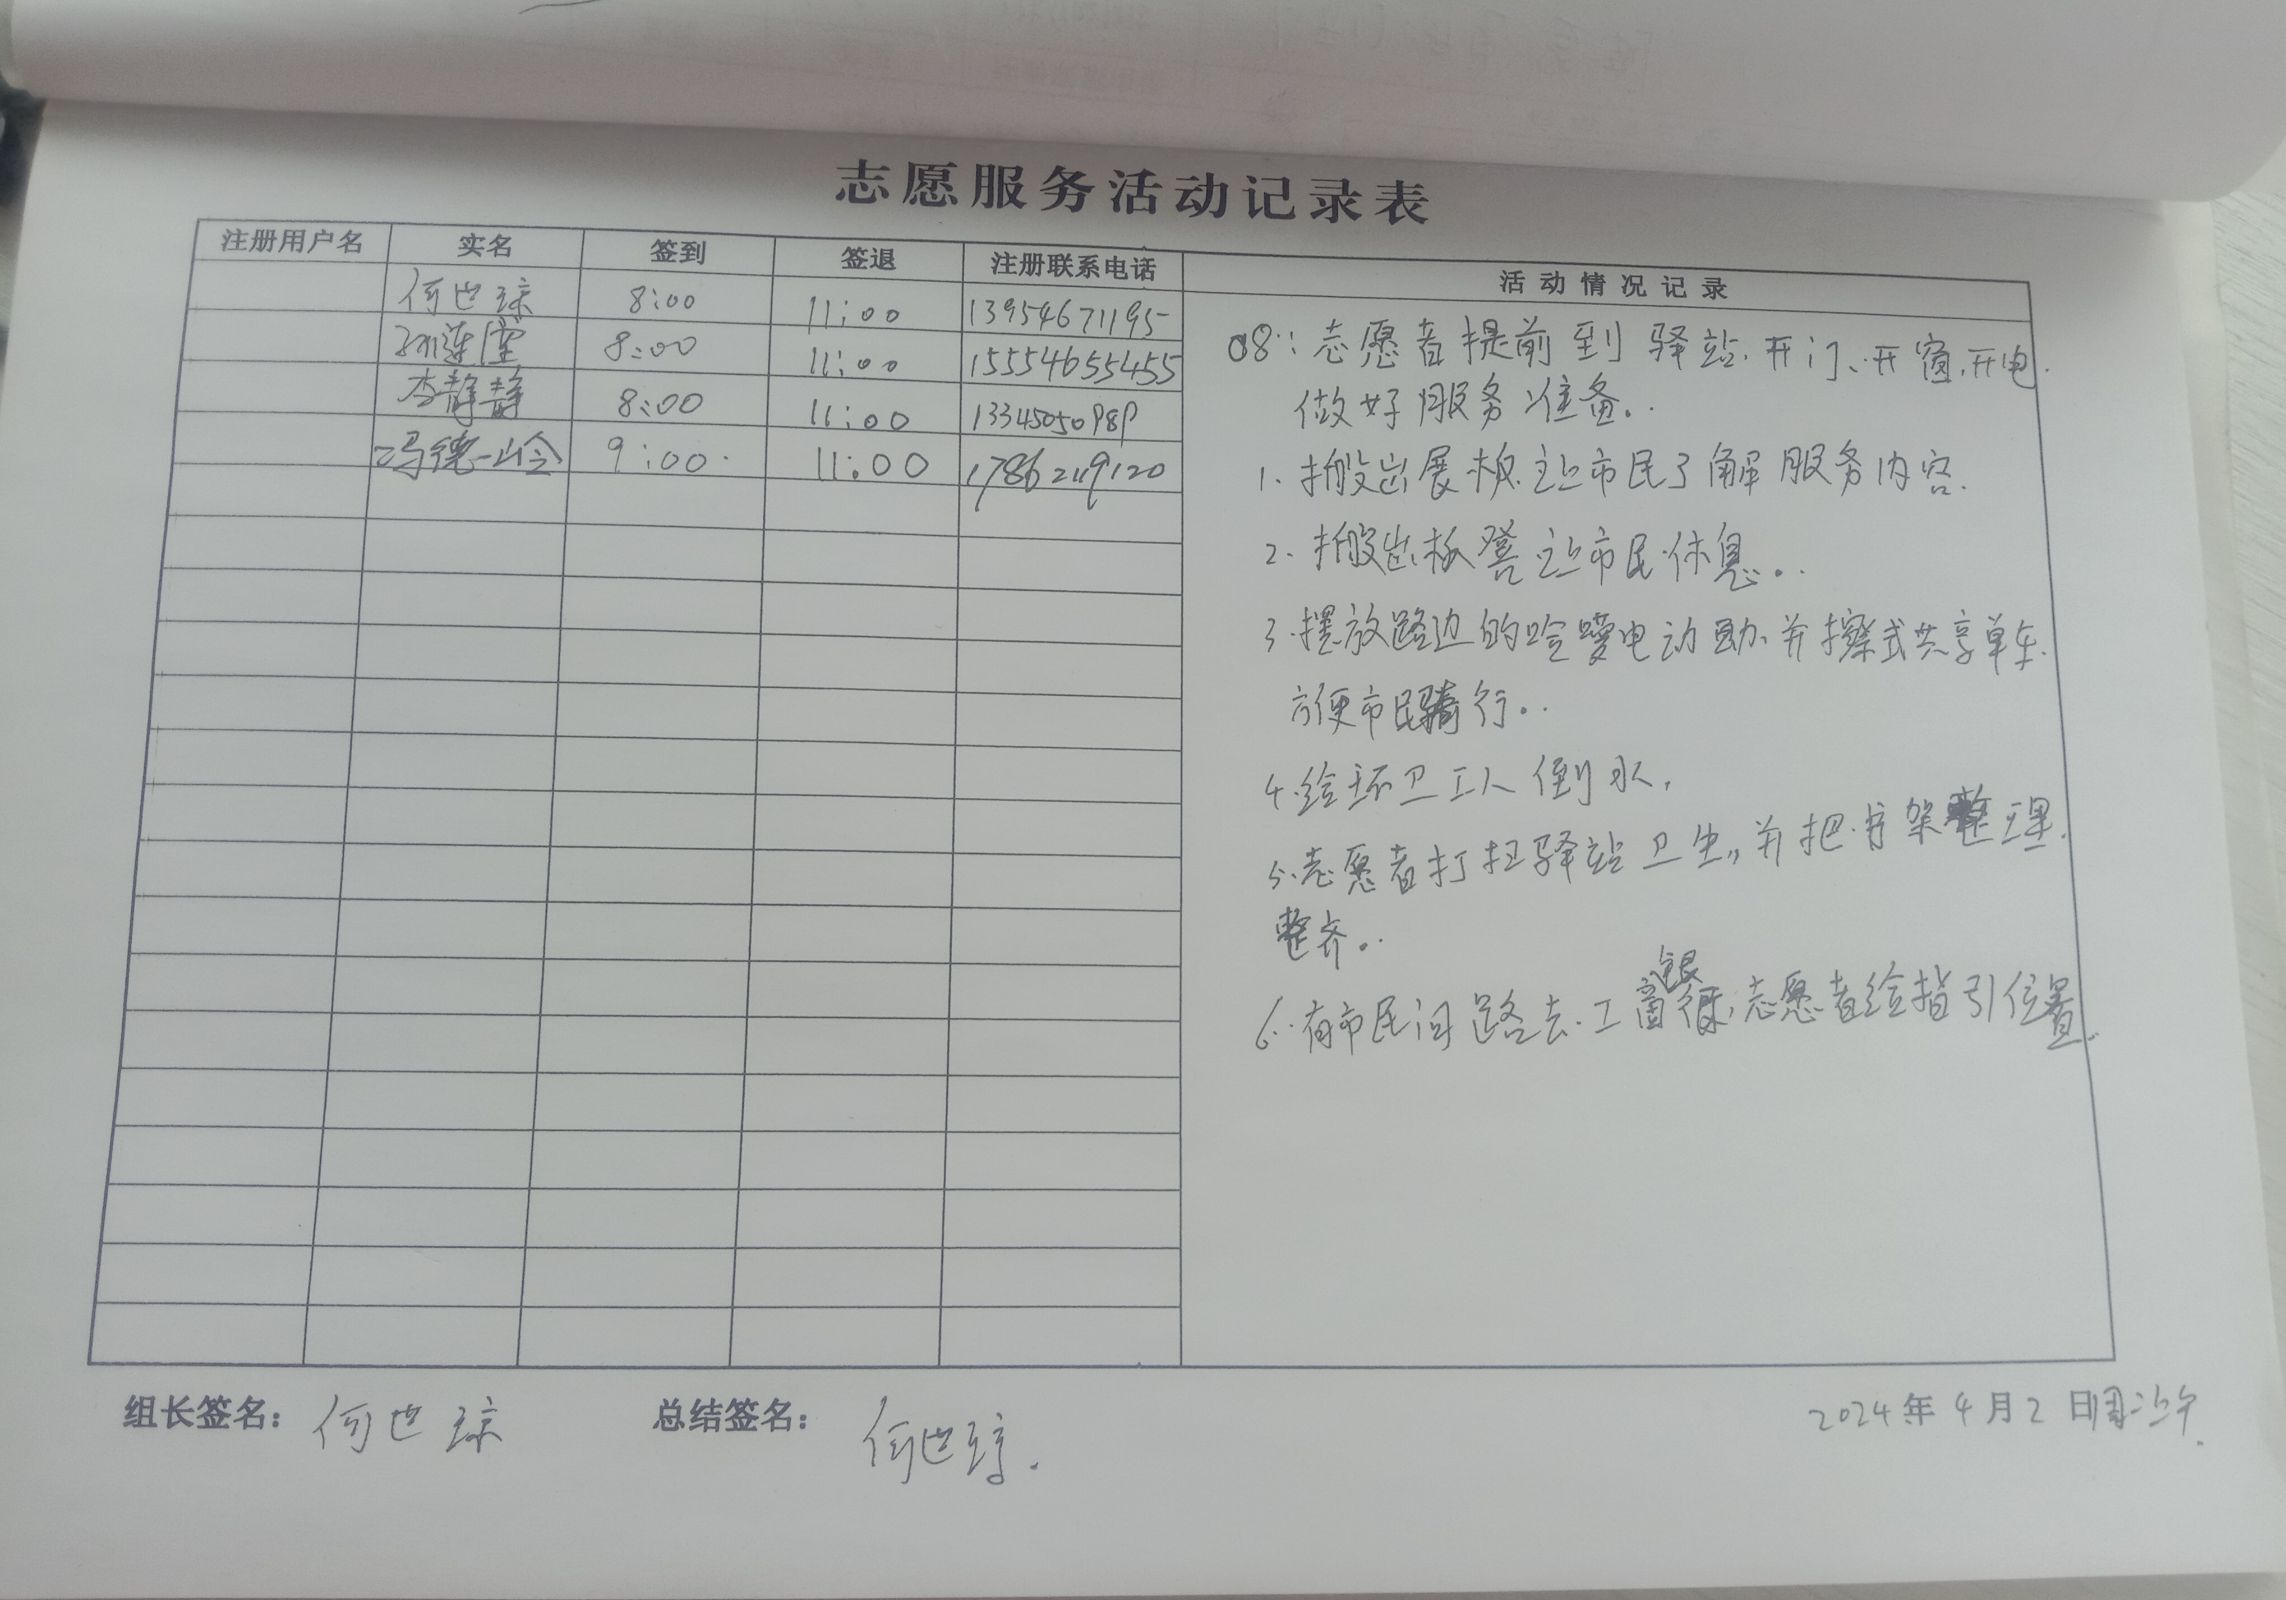 志愿服务活动记录表
注册用户名 实名 签到 签退 注册联系电话 活动情况记录
何世琼 8:00 11:00 13954671195
孙莲 8:00 11:00 15554655455
李静静 8:00 11:00 13345050989
冯德岭 9:00 11:00 17862119120
08:志愿者提前到驿站.开门、开窗.开电.
做好服务准备..
1.搬出展板.让市民了解服务内容.
2.搬出板凳让市民休息..
3.摆放路边的哈啰电动助.并擦拭共享单车.
方便市民骑行..
4.给环卫工人倒水.
5.志愿者打扫驿站卫生,,并把书架整理.
整齐..
6.有市民问路去.工商银行,志愿者给指引位置.
组长签名: 何世琼 总结签名: 何世琼. 2024年4月2日周二上午.